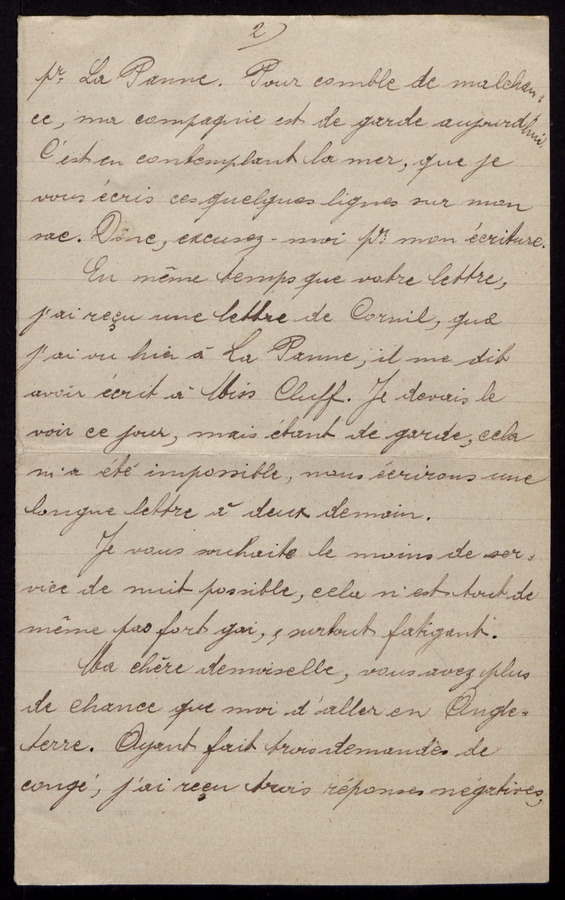 2)
pr. La Panne. Pour comble de malchan=
ce, ma compagnie est de garde aujourd'hui.
C'est en contemplant la mer, que je
vous écris ces quelques lignes sur mon
sac. Donc, excusez-moi pr. mon écriture.
En même temps que votre lettre,
j'ai reçu une lettre de Cornil, que
j'ai vu hier à La Panne, il me dit
avoir écrit à Miss Cluff. Je devais le
voir ce jour, mais étant de garde, cela
m'a été impossible, nous écrirons une
longue lettre à deux demain.
Je vous souhaite le moins de ser=
vice de nuit possible, cela n'est tout de
même pas fort gai, surtout fatigant.
Ma chère demoiselle, vous avez plus
de chance que moi d'aller en Angle=
terre. Ayant fait trois demandes de
congé, j'ai reçu trois réponses négatives,